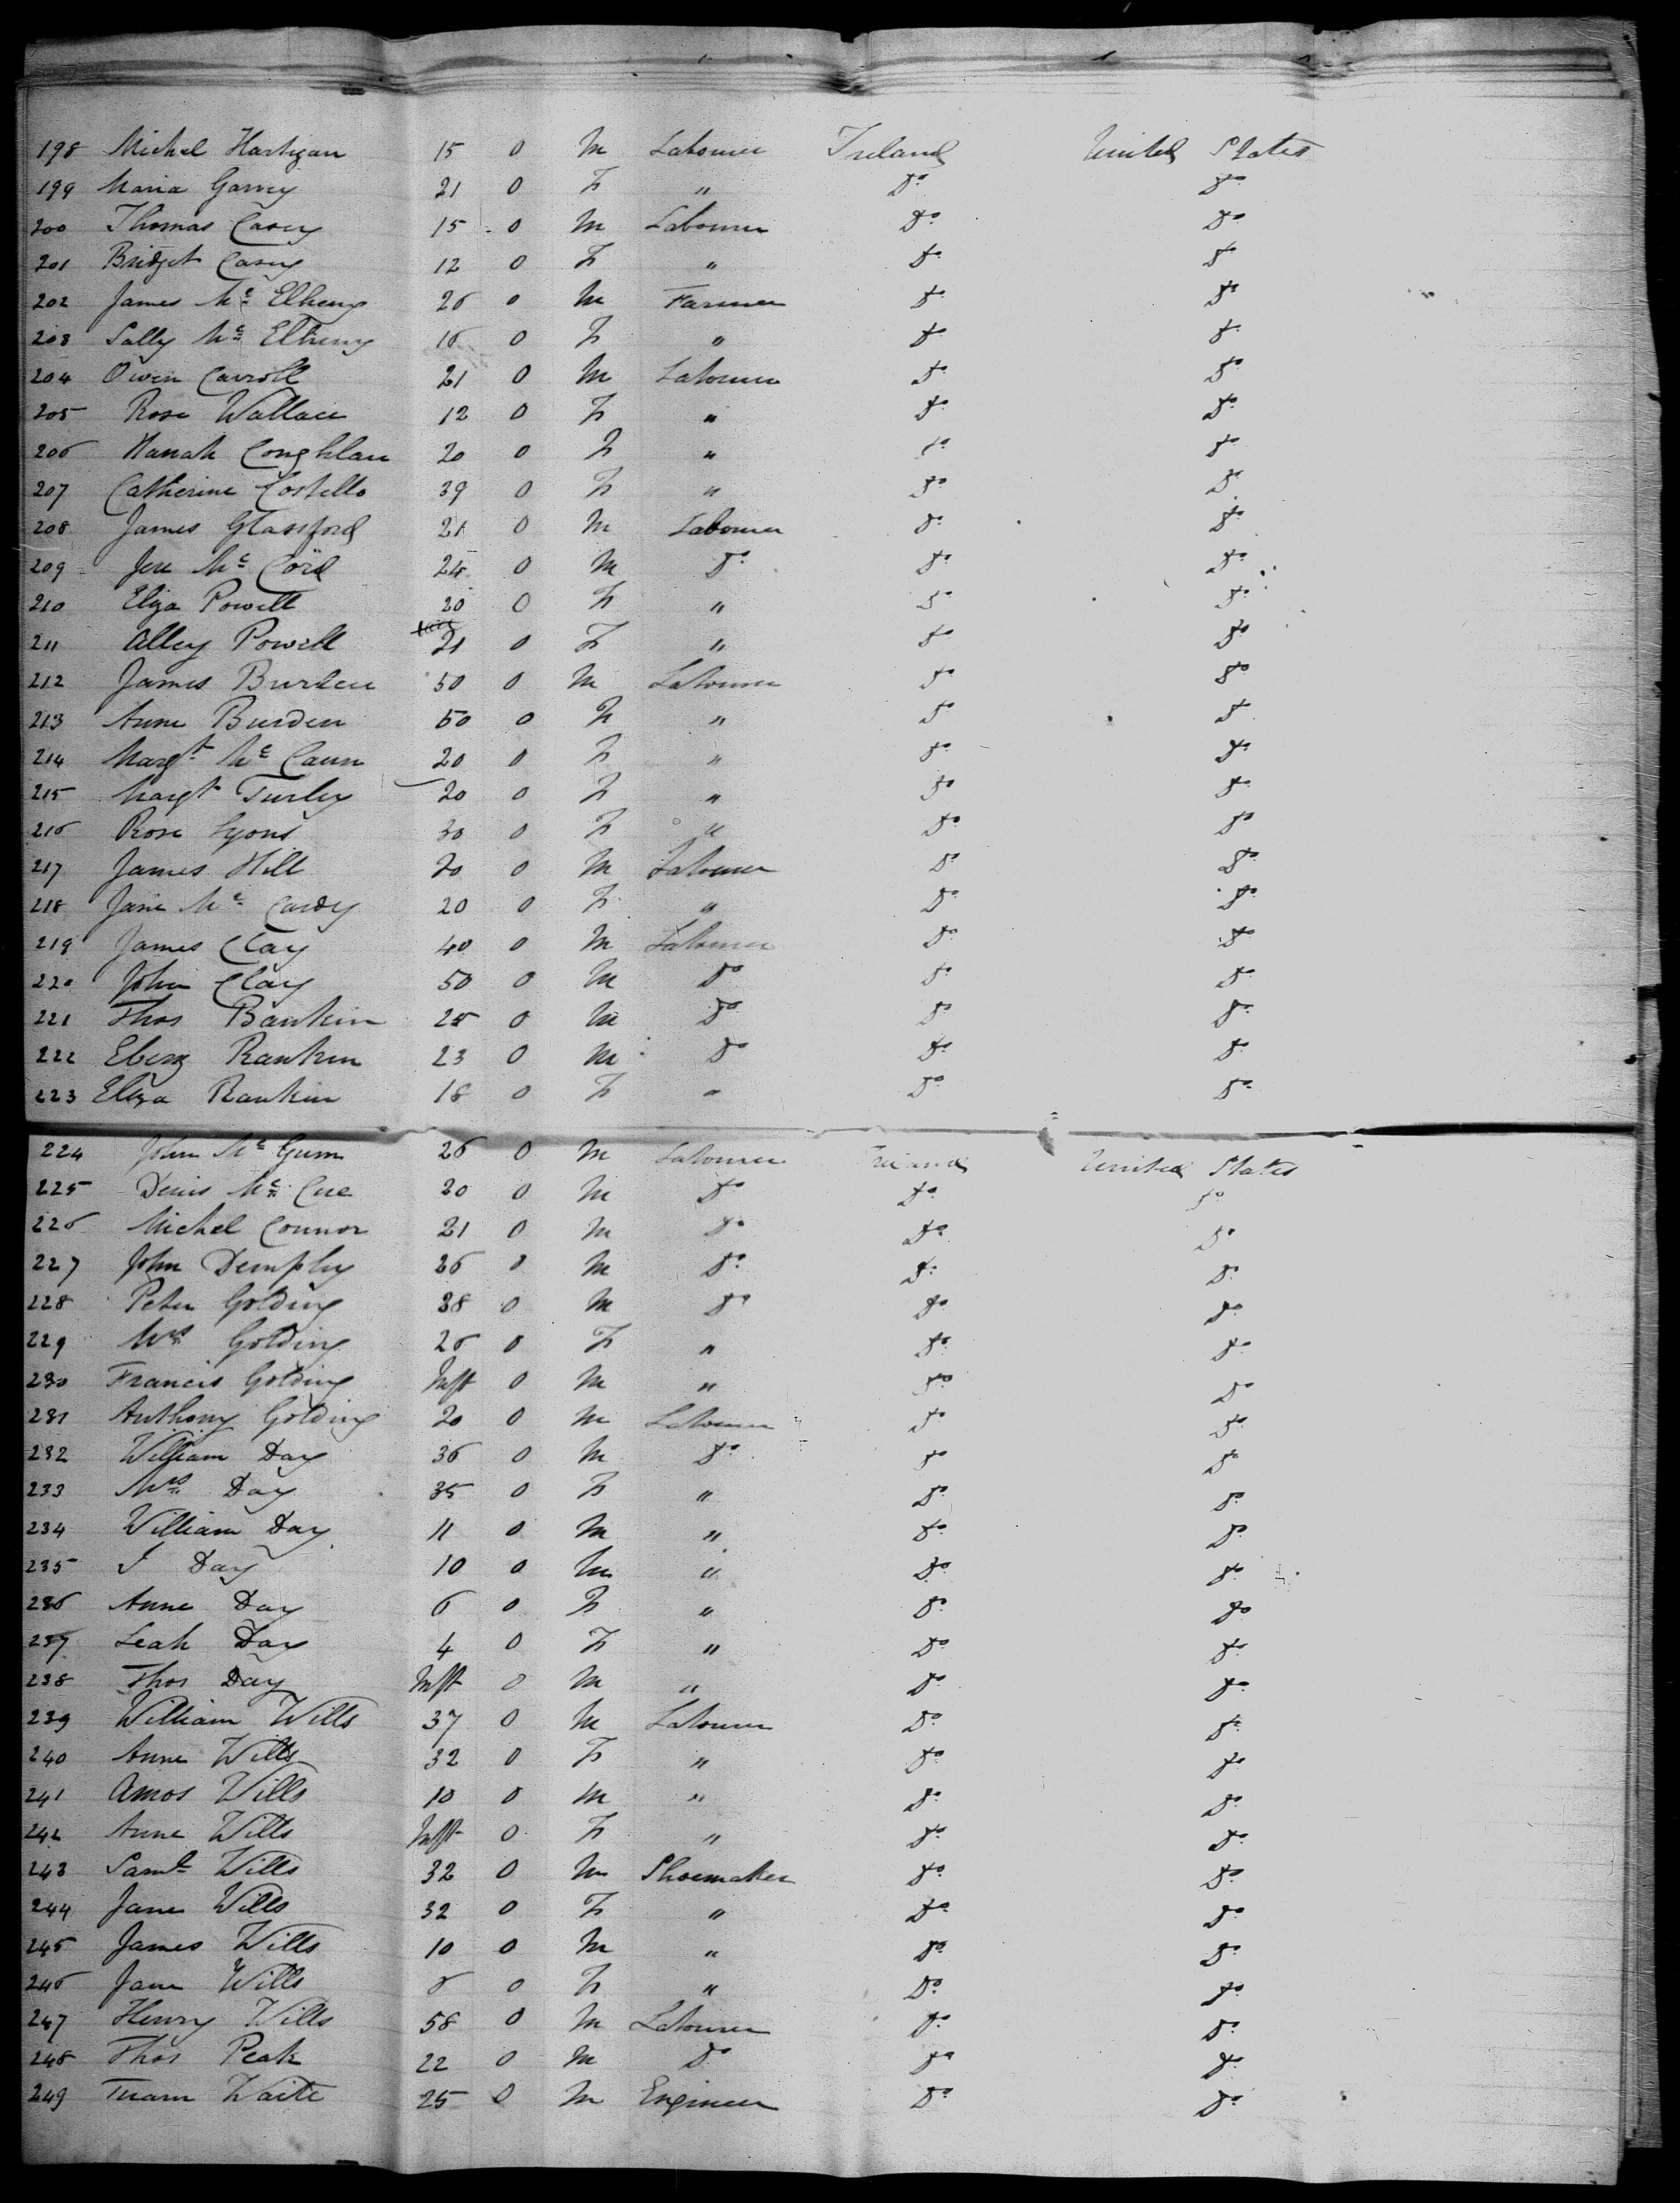 198 Michel Hartigan 15 0 M Labourer Ireland United States
199 Maria Garvey 21 0 F " Do Do
200 Thomas Casey 15 0 M Labourer Do Do
201 Bridget Casey 12 0 F " Do Do
202 James Mc Elheny 26 0 M Farmer Do Do
203 Sally Mc Elheny 16 0 F " Do Do
204 Owen Carroll 21 0 M Labourer Do Do
205 Rose Wallace 12 0 F " Do Do
206 Hanah Coughlan 20 0 F " Do Do
207 Catherine Costello 39 0 F " Do Do
208 James Glassford 21 0 M Labourer Do Do
209 Jere Mc Cord 24 0 M Do Do Do
210 Eliza Powell 20 0 F " Do Do
211 Alley Powell 21 0 F " Do Do
212 James Burden 50 0 M Labourer Do Do
213 Anne Burden 50 0 F " Do Do
214 Margt Mc Cann 20 0 F " Do Do
215 Margt Turley 20 0 F " Do Do
216 Rose Lyons 30 0 F " Do Do
217 James Hill 20 0 M Labourer Do Do
218 Jane Mc Cardy 20 0 F " Do Do
219 James Clay 40 0 M Labourer Do Do
220 John Clay 50 0 M Do Do Do
221 Thos Rankin 25 0 M Do Do Do
222 Ebenz Rankin 23 0 M Do Do Do
223 Eliza Rankin 18 0 F " Do Do
224 John Mc Gunn 26 0 M Labourer Ireland United States
225 Denis Mc Cue 20 0 M Do Do Do
226 Michel Connor 21 0 M Do Do Do
227 John Demphy 26 0 M Do Do Do
228 Peter Golding 38 0 M Do Do Do
229 Mrs Golding 26 0 F " Do Do
230 Francis Golding Inft 0 M " Do Do
231 Anthony Golding 20 0 M Labourer Do Do
232 William Day 36 0 M Do Do Do
233 Mrs Day 35 0 F " Do Do
234 William Day 11 0 M " Do Do
235 J Day 10 0 M " Do Do
236 Anne Day 6 0 F " Do Do
237 Leah Day 4 0 F " Do Do
238 Thos Day Inft 0 M " Do Do
239 William Wills 37 0 M Labourer Do Do
240 Anne Wills 32 0 F " Do Do
241 Amos Wills 10 0 M " Do Do
242 Anne Wills Inft 0 F " Do Do
243 Saml Wills 32 0 M Shoemaker Do Do
244 Jane Wills 32 0 F " Do Do
245 James Wills 10 0 M " Do Do
246 Jane Wills 8 0 F " Do Do
247 Henry Wills 58 0 M Labourer Do Do
248 Thos Peak 22 0 M Do Do Do
249 Waite 25 0 M Engineer Do Do